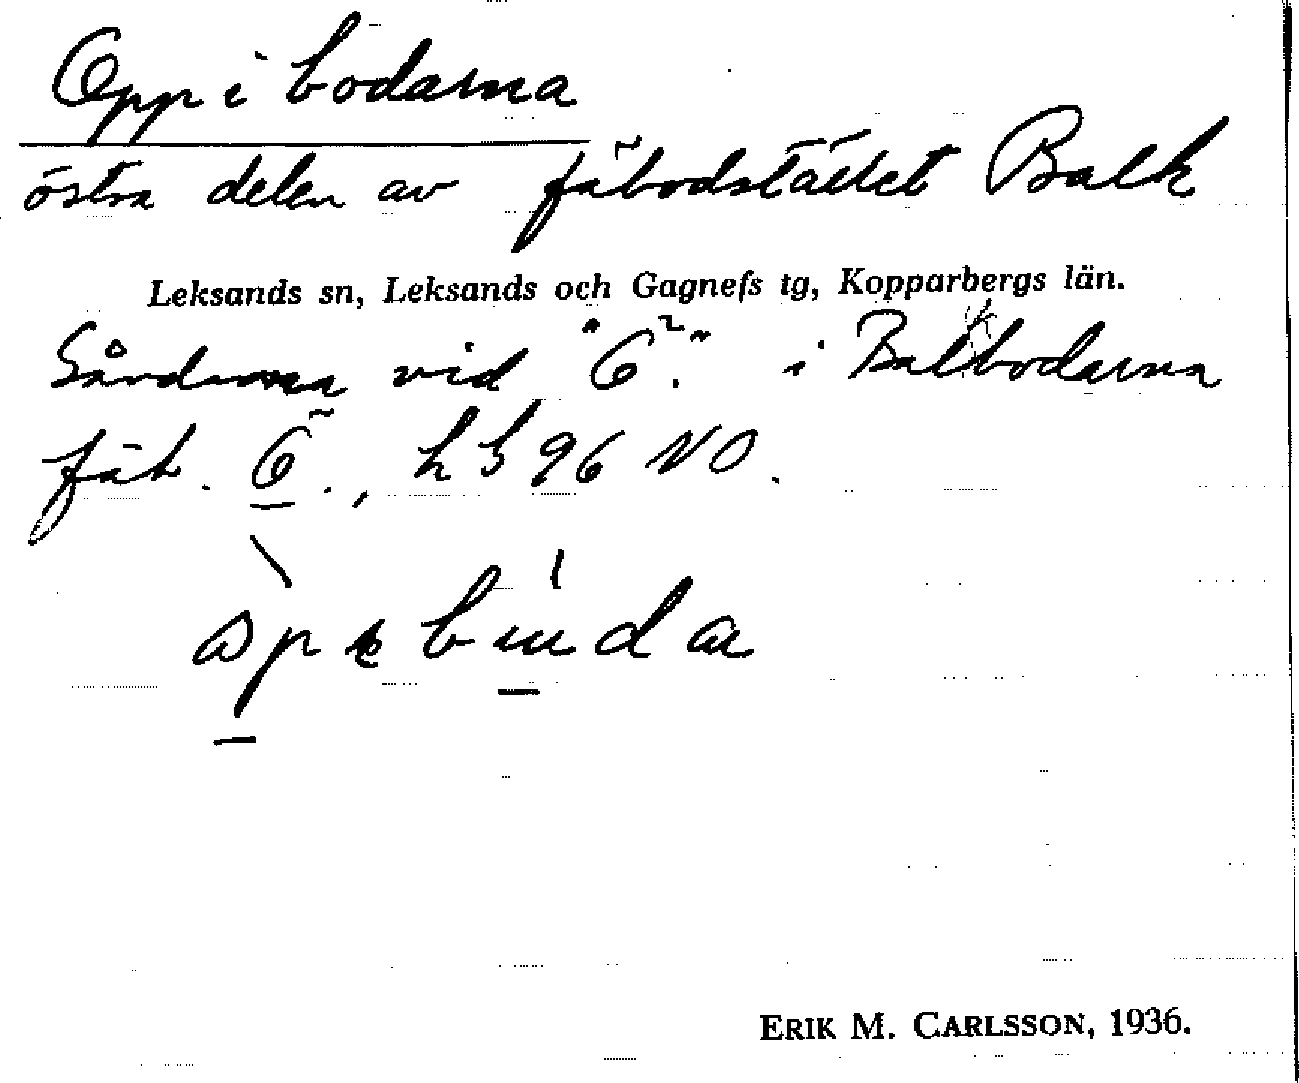 Opp i bodarna
östra delen av fäbodstället Balk
Leksands sn, Leksands och Gagnefs tg, Kopparbergs län.
Gårdarna vid "Ö." i Balkbodarna
fäb. Ö., h b 96 NO.
ERIK M. CARLSSON, 1936.